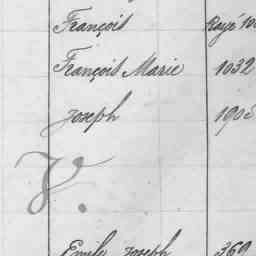 François Rayé
François Marie 1032
Joseph
V.
Emile Joseph 369